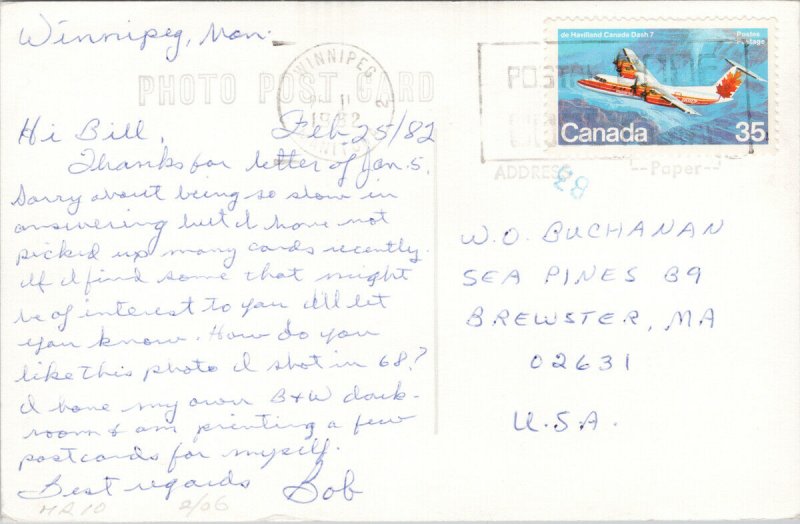 Winnipeg, Man.
PHOTO POST CARD
WINNIPEG
II
1982
2
de Havilland Canada Dash 7
Postes
Postage
POSTAL CODE
Canada
35
ADDRESS
--Paper--
83
Hi Bill,
Feb-25/82
Thanks for letter of Jan. 5.
Sorry about being so slow in
answering but I have not
picked up many cards recently.
If I find some that might
be of interest to you I'll let
you know. How do you
like this photo I shot in 68?
I have my own B+W dark-
room & am printing a few
postcards for myself.
Best regards Bob
W.O. BUCHANAN
SEA PINES B9
BREWSTER, MA
02631
U.S.A.
HR10
2/06